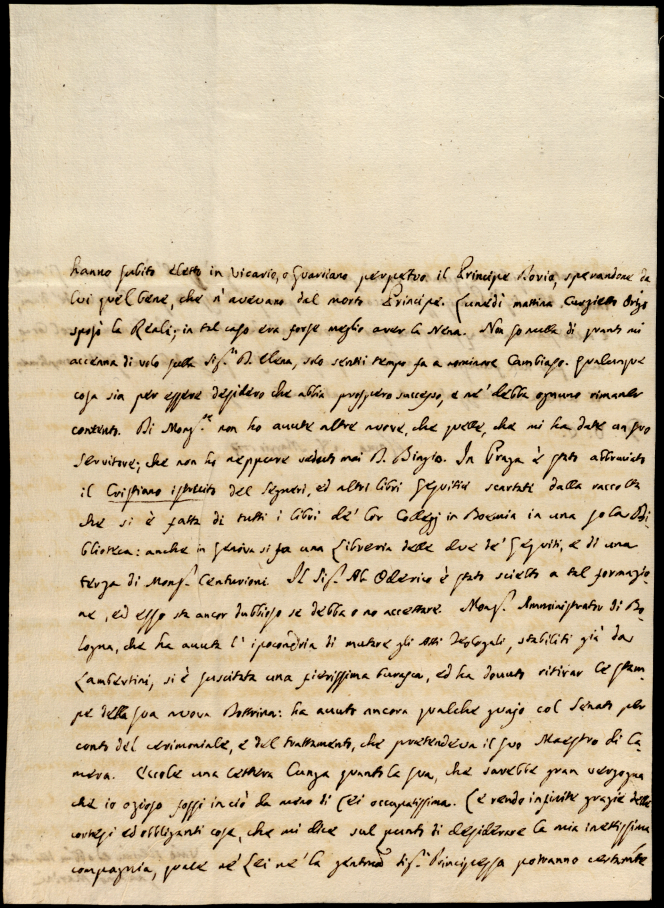 hanno subito eletto in Vicario, o Guardiano perpetuo il Principe Novio, sperandone da
lui quel bene, che n'avevano dal morto Principe. Lunedì mattina
sposò la Reali; in tal caso era forse meglio aver la Nena. Non so nulla di quanto mi
accenna di volo sulla Sig.ra D. Elena, solo sentii tempo fa a nominare Cambiaso. Qualunque
cosa sia per essere desidero che abbia prospero successo, e ne debba ognuno rimaner
contento. Di Mons.re non ho avute altre nuove, che quelle, che mi ha date un suo
servitore; che non ho neppure veduto mai D. Biagio. In Praga è stato abbruciato
il Cristiano istruito del Segneri, ed altri libri Gesuitici scartati dalla raccolta
che si è fatta di tutti i libri de' lor Collegj in Boemia in una sola Bi-
blioteca: anche in Genova si fa una Libreria delle due de' Gesuiti, e di una
terza di Mons.r Centurioni. Il Sig.r Ab. Oderico è stato scielto a tal formazio-
ne, ed esso sta ancor dubbioso se debba o no accettare. Mons.r Amministrator di Bo-
logna, che ha avuta l'ipocondria di mutare gli Atti stabiliti già da
Lambertini, si è suscitata una fierissima burasca, ed ha dovuto ritirar le stam-
pe della sua nuova Dottrina: ha avuto ancora qualche guajo col Senato per
conto del cerimoniale, e del trattamento, che pretendeva il suo Maestro di Ca-
mera. Eccole una lettera lunga quanto la sua, che sarebbe gran vergogna
che io ozioso fossi in ciò da meno di Lei occupatissima. Le rendo infinite grazie delle
cortesi ed obbliganti cose, che mi dice sul punto di desiderare la mia inettissima
compagnia, quale nè Lei nè la Sig.ra Principessa potranno certamte